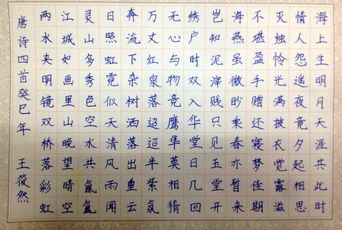 海上生明月天涯共此时
情人怨遥夜竟夕起相思
灭烛怜光满披衣觉露滋
不堪盈手赠还寝梦佳期
海燕虽微眇乘春亦暂来
岂知泥滓贱只见玉堂开
绣户时双入华堂日几回
无心与物竞鹰隼莫相猜
万丈红泉落迢迢半紫氛
奔流下杂树洒落出重云
日照虹霓似天清风雨闻
灵山多秀色空水共氤氲
江城如画里山晚望晴空
两水夹明镜双桥落彩虹
唐诗四首癸巳年 王筱然